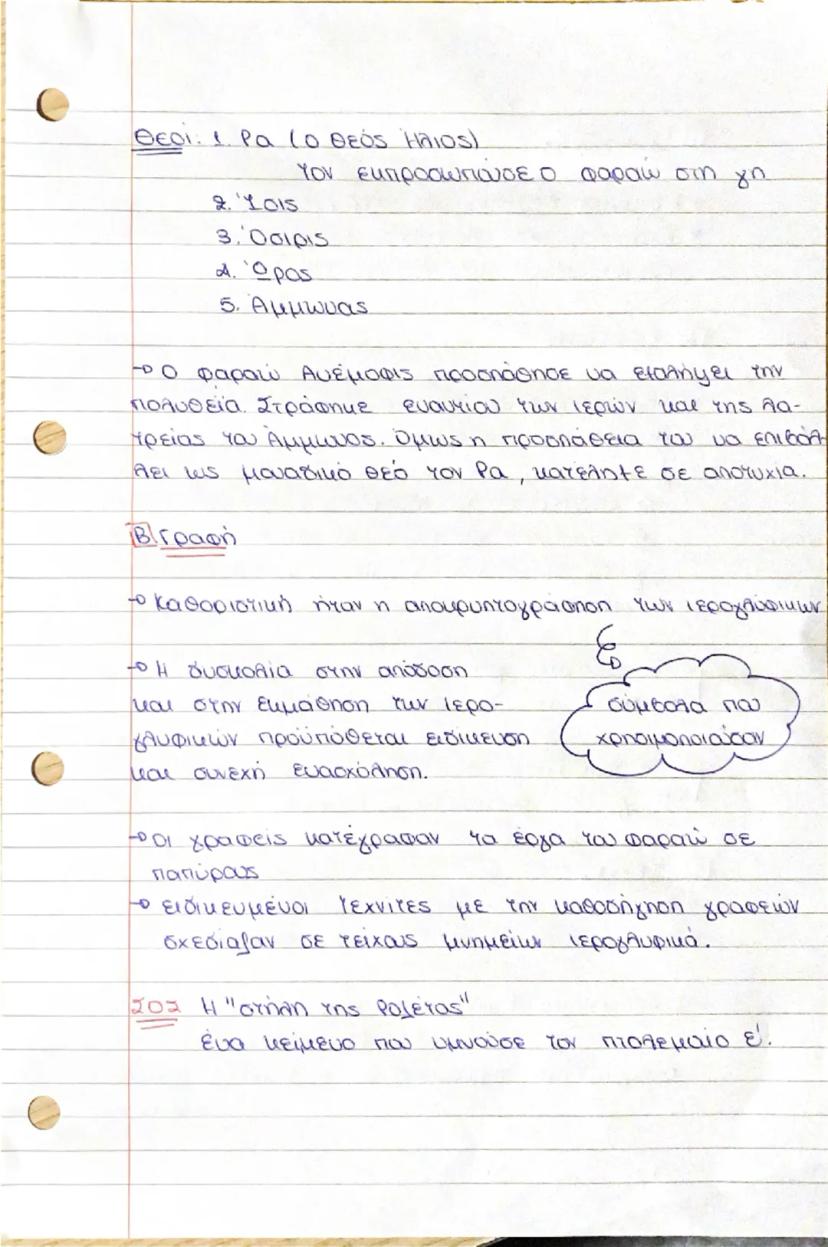 Θεοί: 1. Ρα (ο θεός Ήλιος)
τον εκπροσωπούσε ο φαραώ στη γη
2. Ίσις
3. Όσιρις
4. Ώρος
5. Άμμωνας
→ Ο φαραώ Ανέμοφις προσπάθησε να εξαλήψει την
πολυθεία. Στράφηκε εναντίον των ιερών και της λα-
τρείας του Άμμωνος. Όμως η προσπάθεια του να επιβάλ-
λει ως μοναδικό θεό τον Ρα, κατέληξε σε αποτυχία.
Β. Γραφή
→ Καθοριστική ήταν η αποκρυπτογράφηση των ιερογλύφικων
→ Η δυσκολία στην απόδοση
και στην εκμάθηση των ιερο-
γλυφικών προϋπόθεται ειδίκευση
και συνεχή ενασχόληση.
σύμβολα που
χρησιμοποιούσαν
→ Οι γραφείς κατέγραφαν τα έργα του φαραώ σε
παπύρους
→ ειδικευμένοι τεχνίτες με την καθοδήγηση γραφέων
σχεδίαζαν σε τείχους μνημείων ιερογλυφικά.
ΣΟΣ Η "στήλη της Ροζέτας"
ένα κείμενο που υμνούσε τον πτολεμαίο ε'.